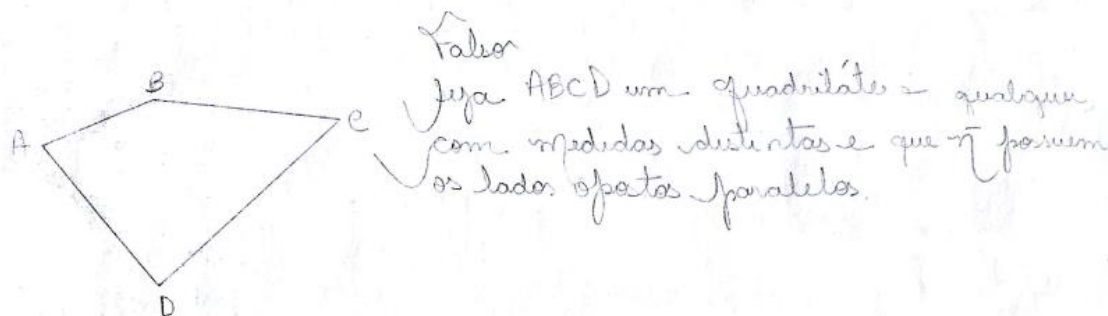 B
Falso
A
C
Seja ABCD um quadrilátero qualquer,
com medidas distintas e que ñ possuem
os lados opostos paralelos.
D